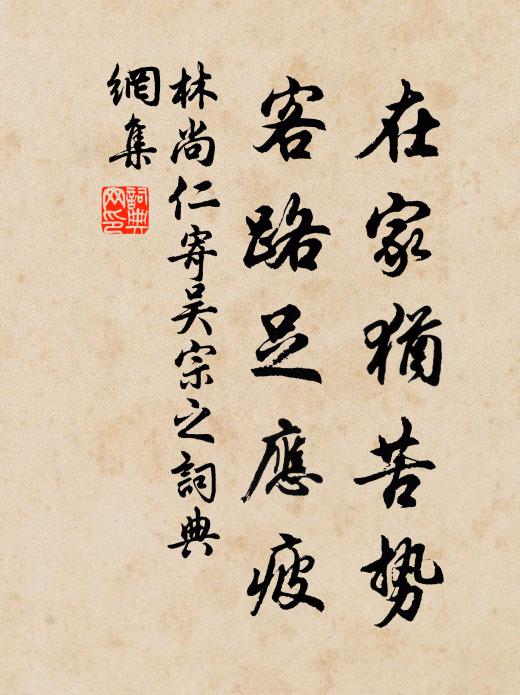 在家猶苦势
客路足應疲
林尚仁寄吴宗之詞典
網集
詞典
网印